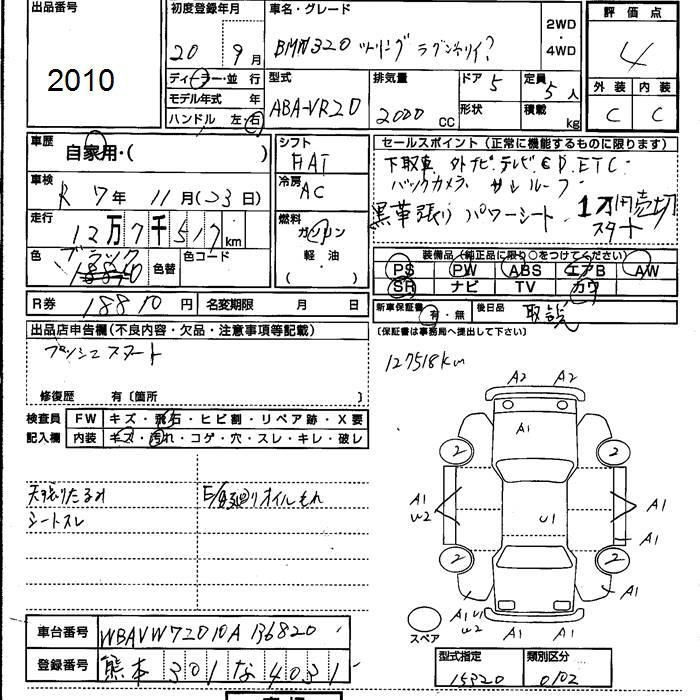 出品番号
2010
初度登録年月
20 9月
ディーラー・並 行
モデル年式 年
ハンドル 左・右
車名・グレード
BMW320 ツーリング
2WD
・
4WD
型式
ABA-VR20
排気量
2000 CC
ドア 5
形状
定員 5人
積載 kg
評価点
4
外装 内装
C C
車歴
自家用・( )
車検
R 7年 11月(23日)
走行
12万7千517km
色
ブラック
色替
色コード
シフト
FAT
冷房
AC
燃料
ガソリン
軽・油
( )
セールスポイント(正常に機能するものに限ります)
下取車 外ナビ.テレビ CD.ETC
バックカメラ サンルーフ
黒革張り パワーシート
1万円売切
スタート
装備品(純正品に限り○をつけてください)
PS PW ABS エアB AW
SR ナビ TV カワ
R券 18810円 名変期限 月 日
新車保証書
有・無
後日品
取説
(保証書は事務局へ提出して下さい)
出品店申告欄(不良内容・欠品・注意事項等記載)
プッシュスタート
修復歴 有〔箇所 〕
127518km
検査員
記入欄
FW キズ・飛石・ヒビ割・リペア跡・X要
内装 キズ・汚れ・コゲ・穴・スレ・キレ・破レ
天張りたるみ
シートスレ
オイルもれ
A2 A2
A1
A1
2 2
A1
U2
U1
A1
A1
2 2
A1
A1 U1
U2
A1 A1
スペア
車台番号 WBAVW72010A136820
登録番号 熊本 301 な 4031
型式指定 類別区分
15320 0102